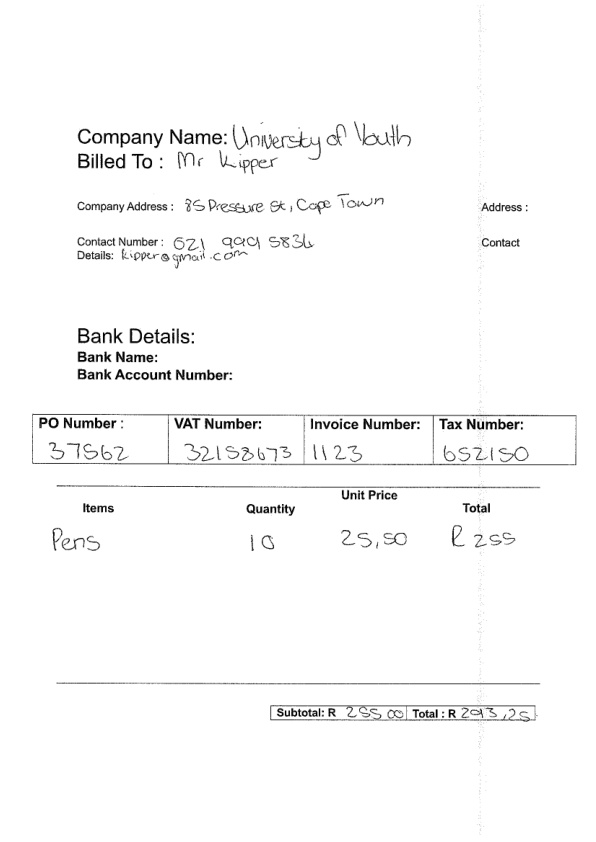 Company Name: University of Youth
Billed To : Mr Kipper
Company Address : 85 Pressure St, Cape Town
Address :
Contact Number : 021 9991 5834
Contact
Details: kipper@gmail.com
Bank Details:
Bank Name:
Bank Account Number:
PO Number : VAT Number: Invoice Number: Tax Number:
37562 32158673 1123 652150
Items Quantity Unit Price Total
Pens 10 25,50 R 255
Subtotal: R 255 00 Total : R 293,25